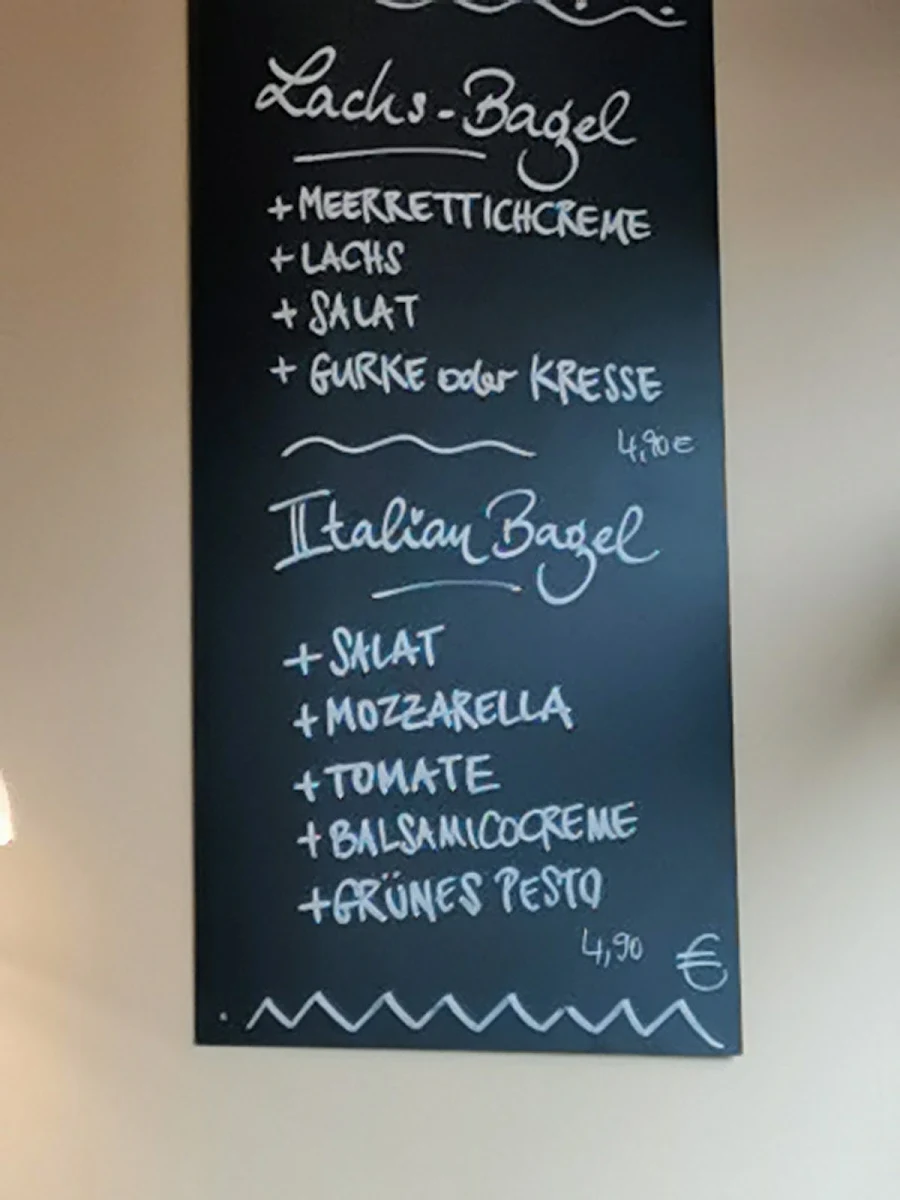 Lachs-Bagel
+ MEERRETTICHCREME
+ LACHS
+ SALAT
+ GURKE oder KRESSE
4,90€
Italian Bagel
+ SALAT
+ MOZZARELLA
+ TOMATE
+ BALSAMICOCREME
+ GRÜNES PESTO
4,90 €